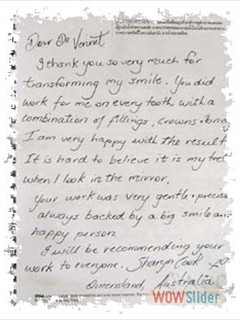 Dear Dr
I thank you so very much for
transforming my smile. You did
work for me on every tooth with a
combination of fillings, crowns
I am very happy with the result
It is hard to believe it is my
when I look in the mirror.
Your work was very gentle & precise
always backed by a big smile an
happy person
I will be recommending your
work to everyone.
Queensland, Australia
WOWSlider